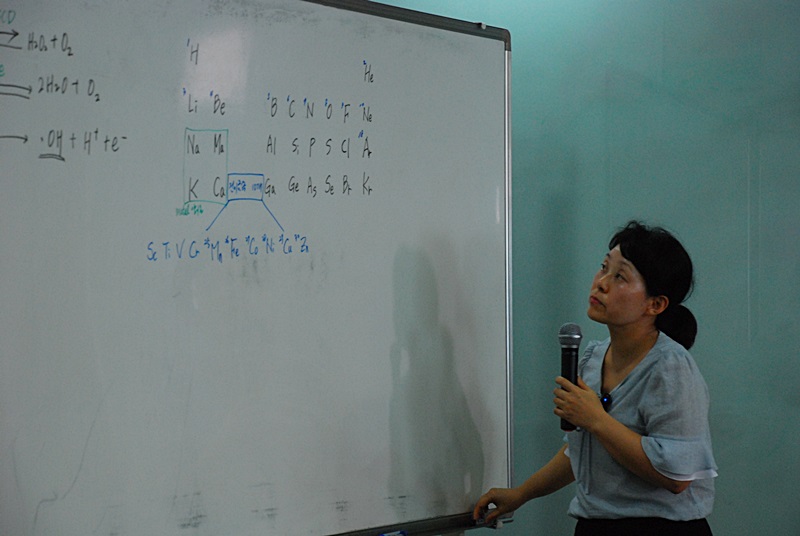 H₂O₂ + O₂
2H₂O + O₂
·OH + H⁺ + e⁻
¹H
²He
³Li ⁴Be ⁵B ⁶C ⁷N ⁸O ⁹F ¹⁰Ne
Na Ma Al Si P S Cl Ar
K Ca Ga Ge As Se Br Kr
Sc Ti V Cr ²⁵Mn ²⁶Fe ²⁷Co ²⁸Ni ²⁹Cu ³⁰Zn